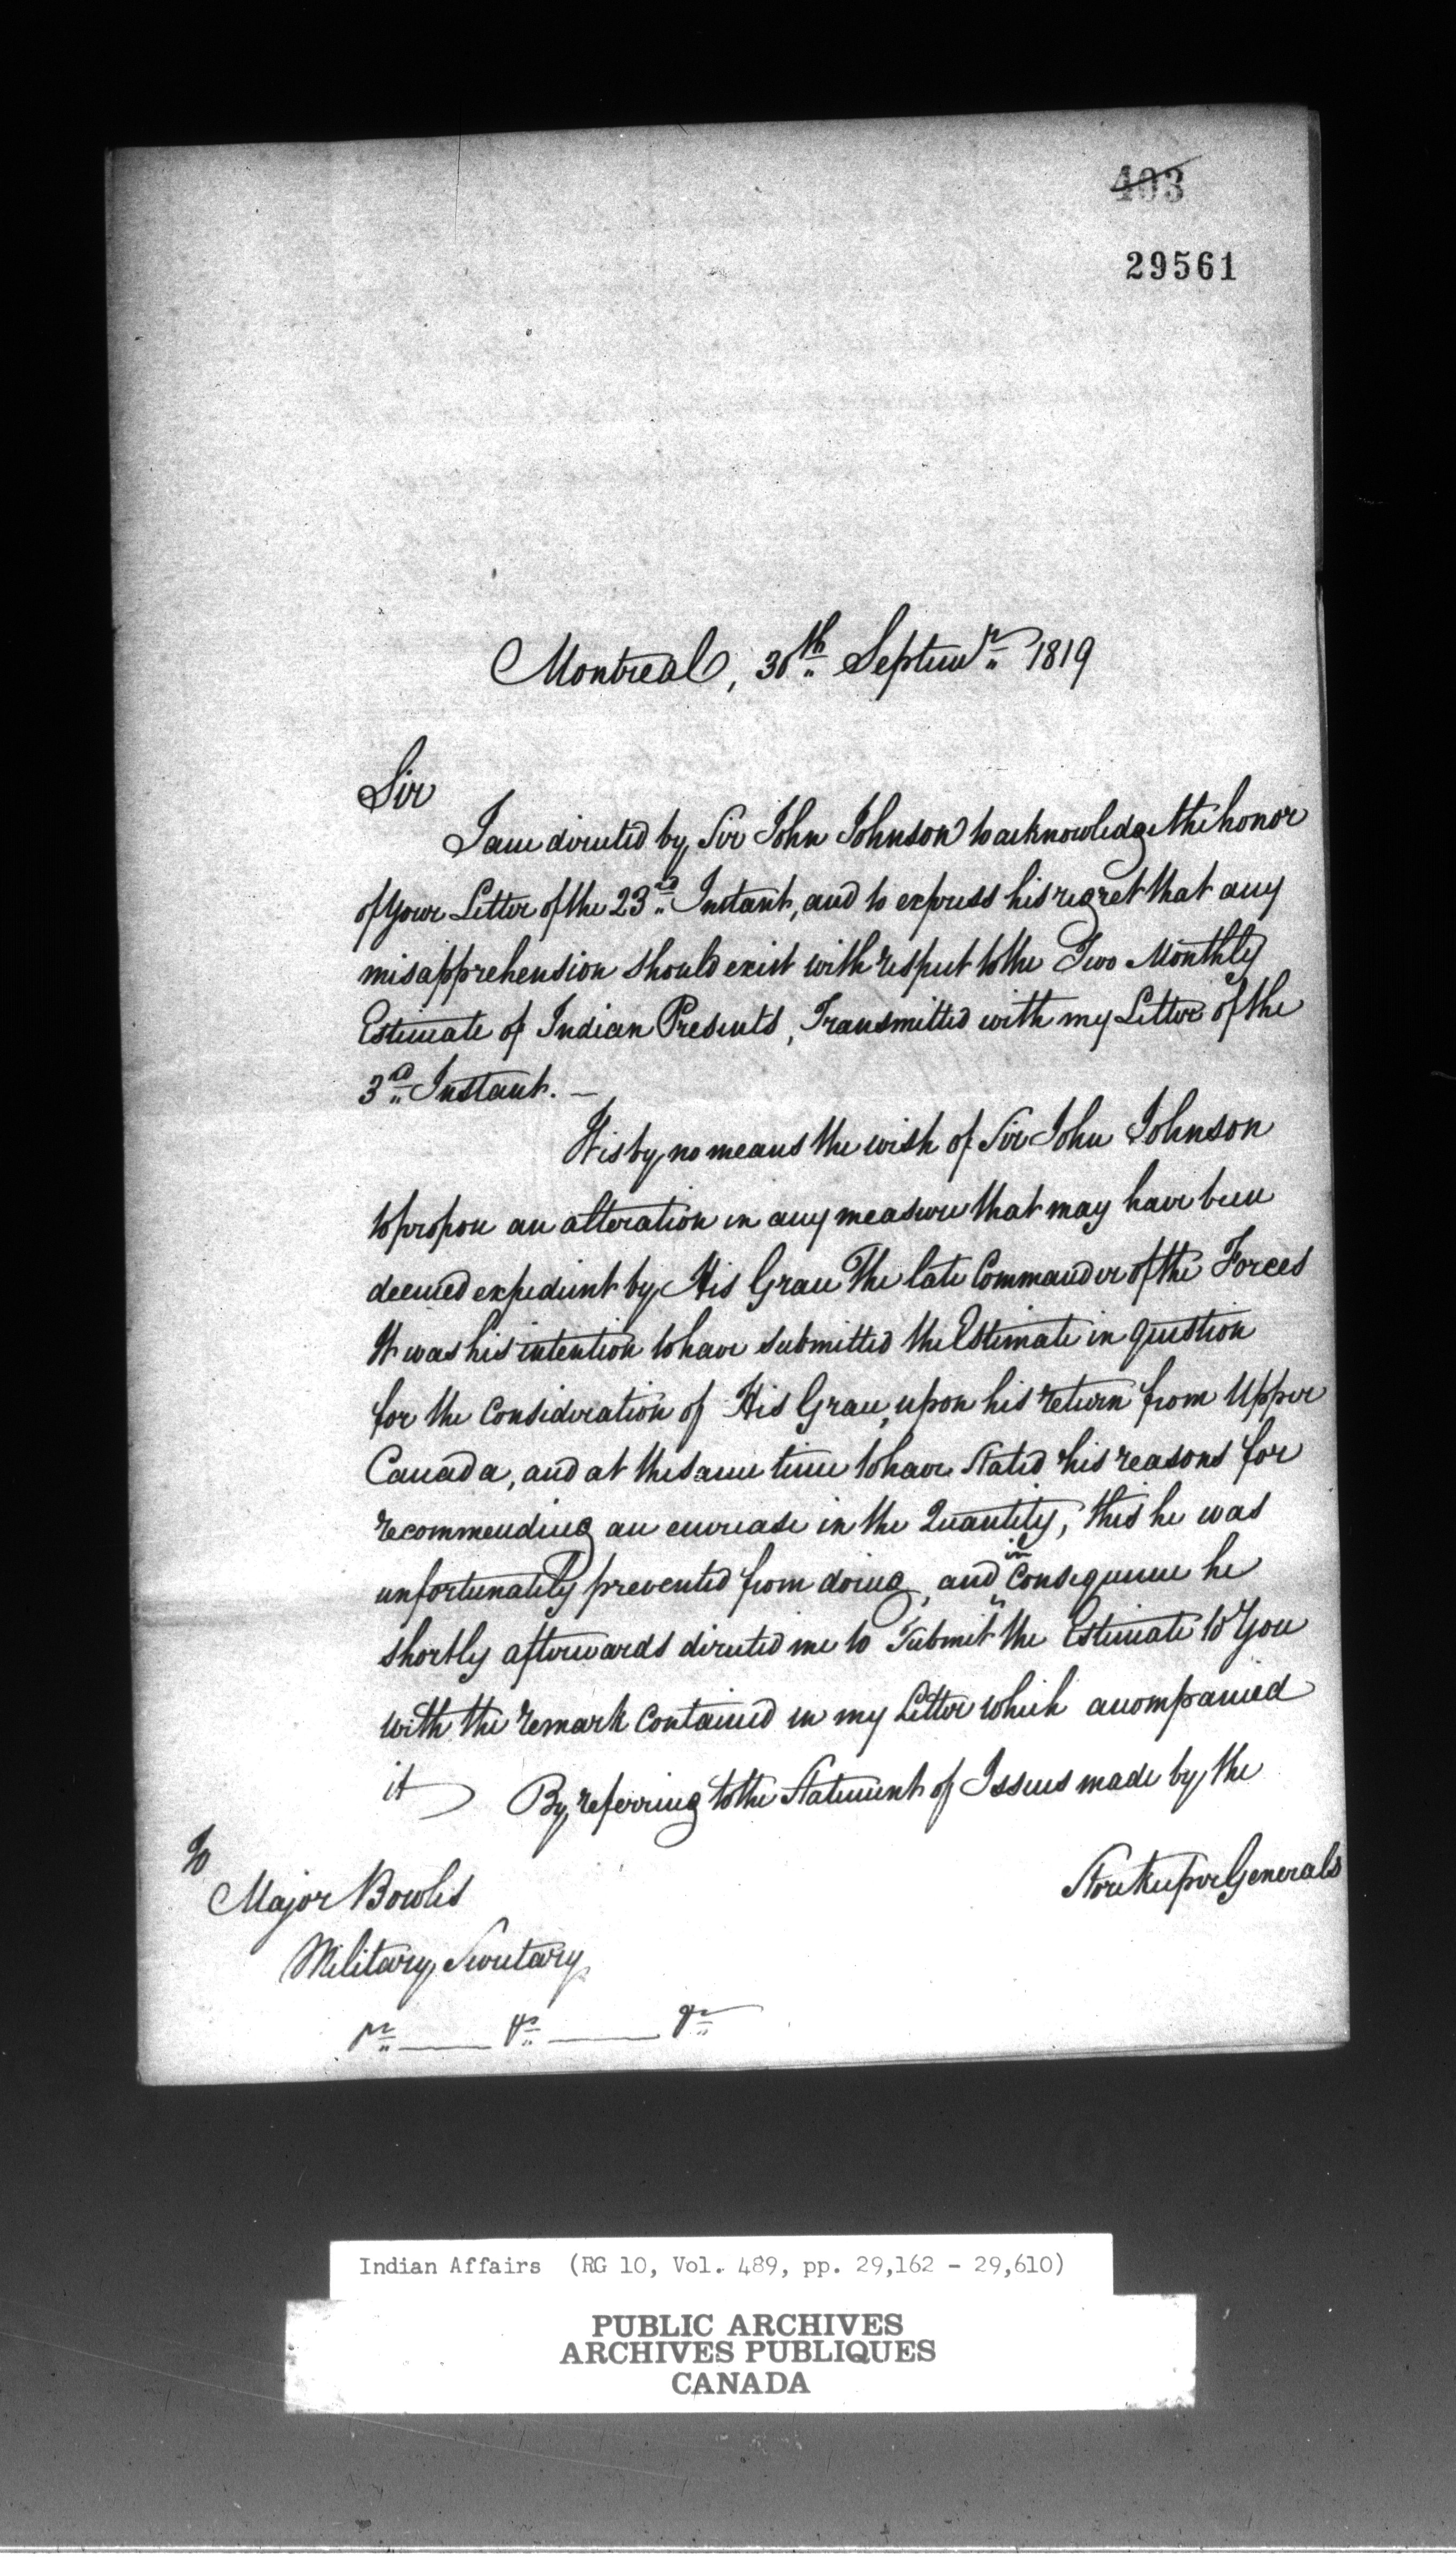 403
29561
Montreal, 30th Septemr 1819
Sir
I am directed by Sir John Johnson to acknowledge the honor
of your Letter of the 23rd Instant, and to express his regret that any
misapprehension should exist with respect to the Two Monthly
Estimate of Indian Presents, Transmitted with my Letter of the
3rd Instant. —
It is by no means the wish of Sir John Johnson
to propose an alteration in any measure that may have been
deemed expedient by His Grace The late Commander of the Forces
It was his intention to have submitted the Estimate in question
for the Consideration of His Grace, upon his return from Upper
Canada, and at the same time to have Stated his reasons for
recommending an encrease in the Quantity, this he was
unfortunately prevented from doing, and in Consequence he
shortly afterwards directed me to Submit the Estimate to You
with the remark contained in my Letter which accompanied
it By referring to the Statement of Issues made by the
To
Major Bowles
Storekeeper Generals
Military Secretary
Indian Affairs (RG 10, Vol. 489, pp. 29,162 - 29,610)
PUBLIC ARCHIVES
ARCHIVES PUBLIQUES
CANADA